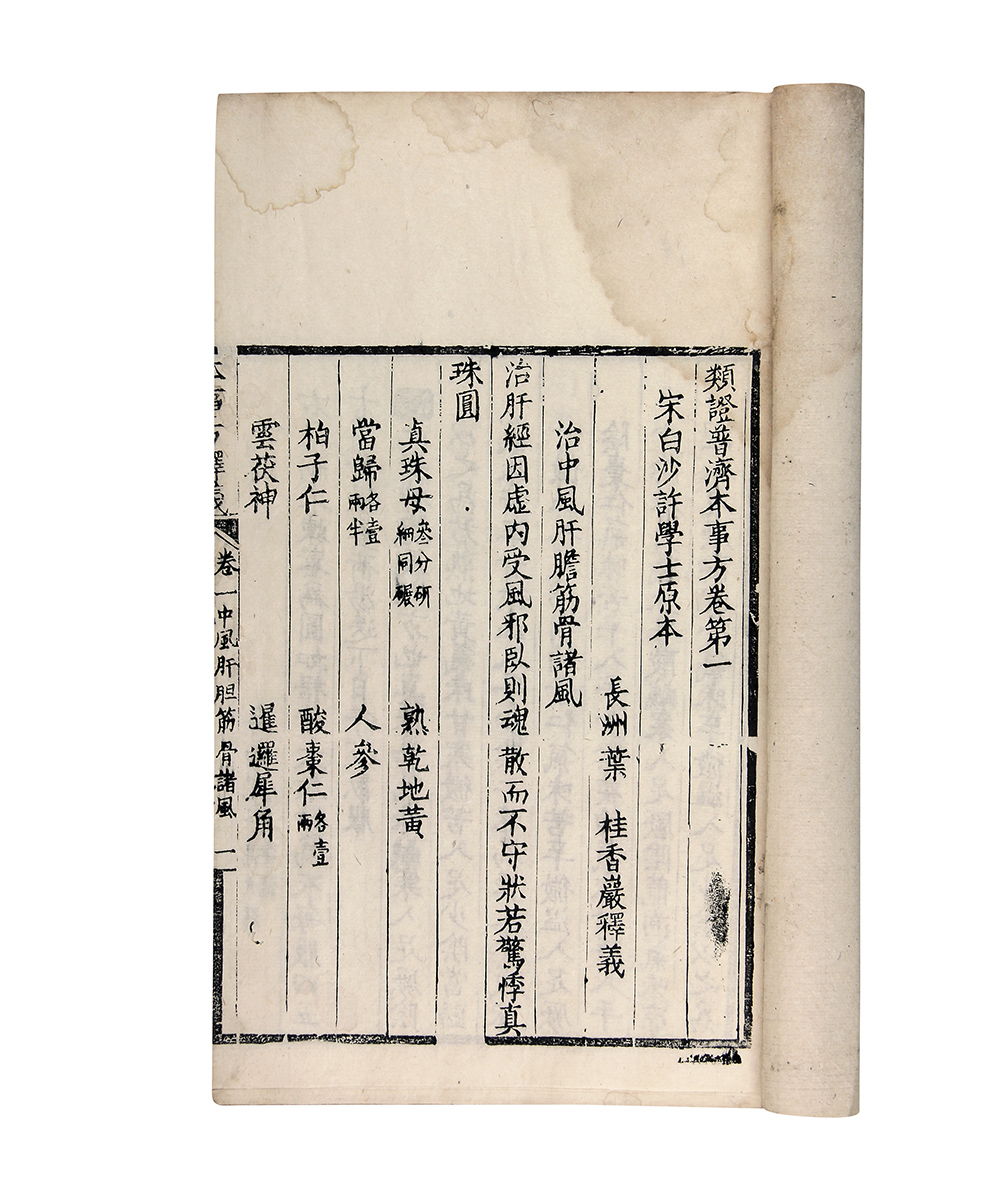 類證普濟本事方卷第一
宋白沙許學士原本
長洲葉 桂香巖釋義
治中風肝膽筋骨諸風
治肝經因虛內受風邪臥則魂散而不守狀若驚悸真
珠圓
真珠母 叁分研細同碾 熟乾地黃
當歸 各壹兩半 人參
柏子仁 酸棗仁 各壹兩
雲茯神 暹邏犀角
本事方釋義 卷一 中風肝胆筋骨諸風 一